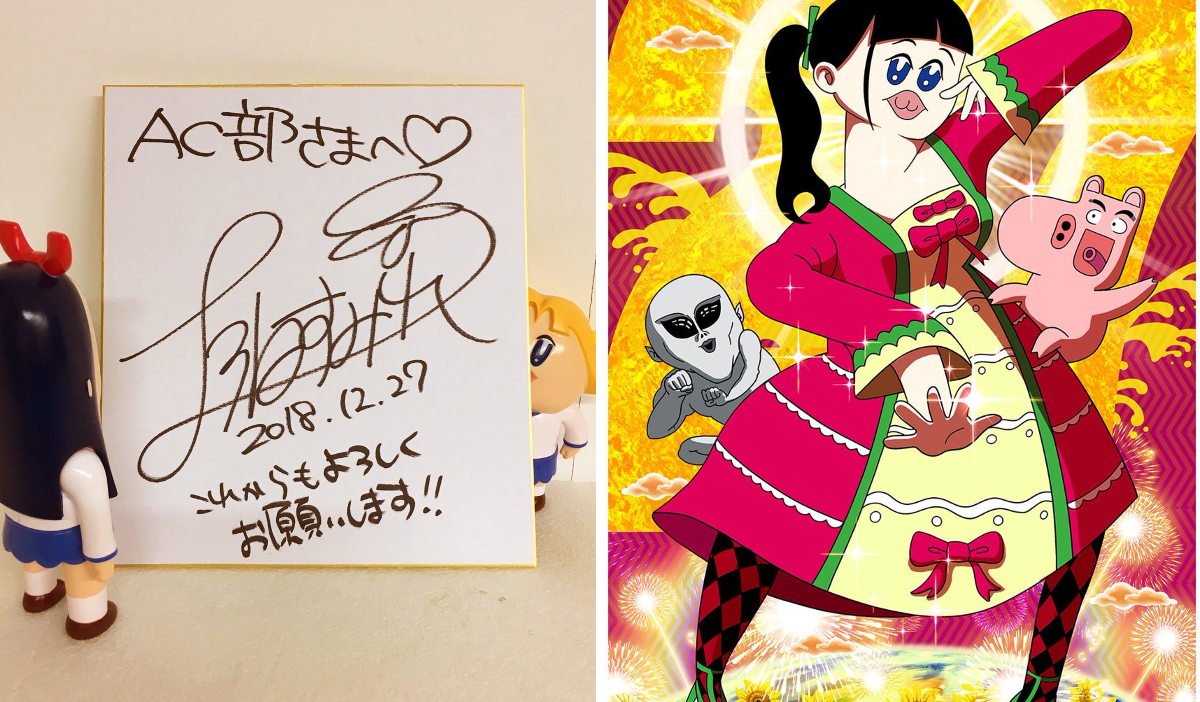 AC部さまへ♡
2018.12.27
これからもよろしく
お願いします!!